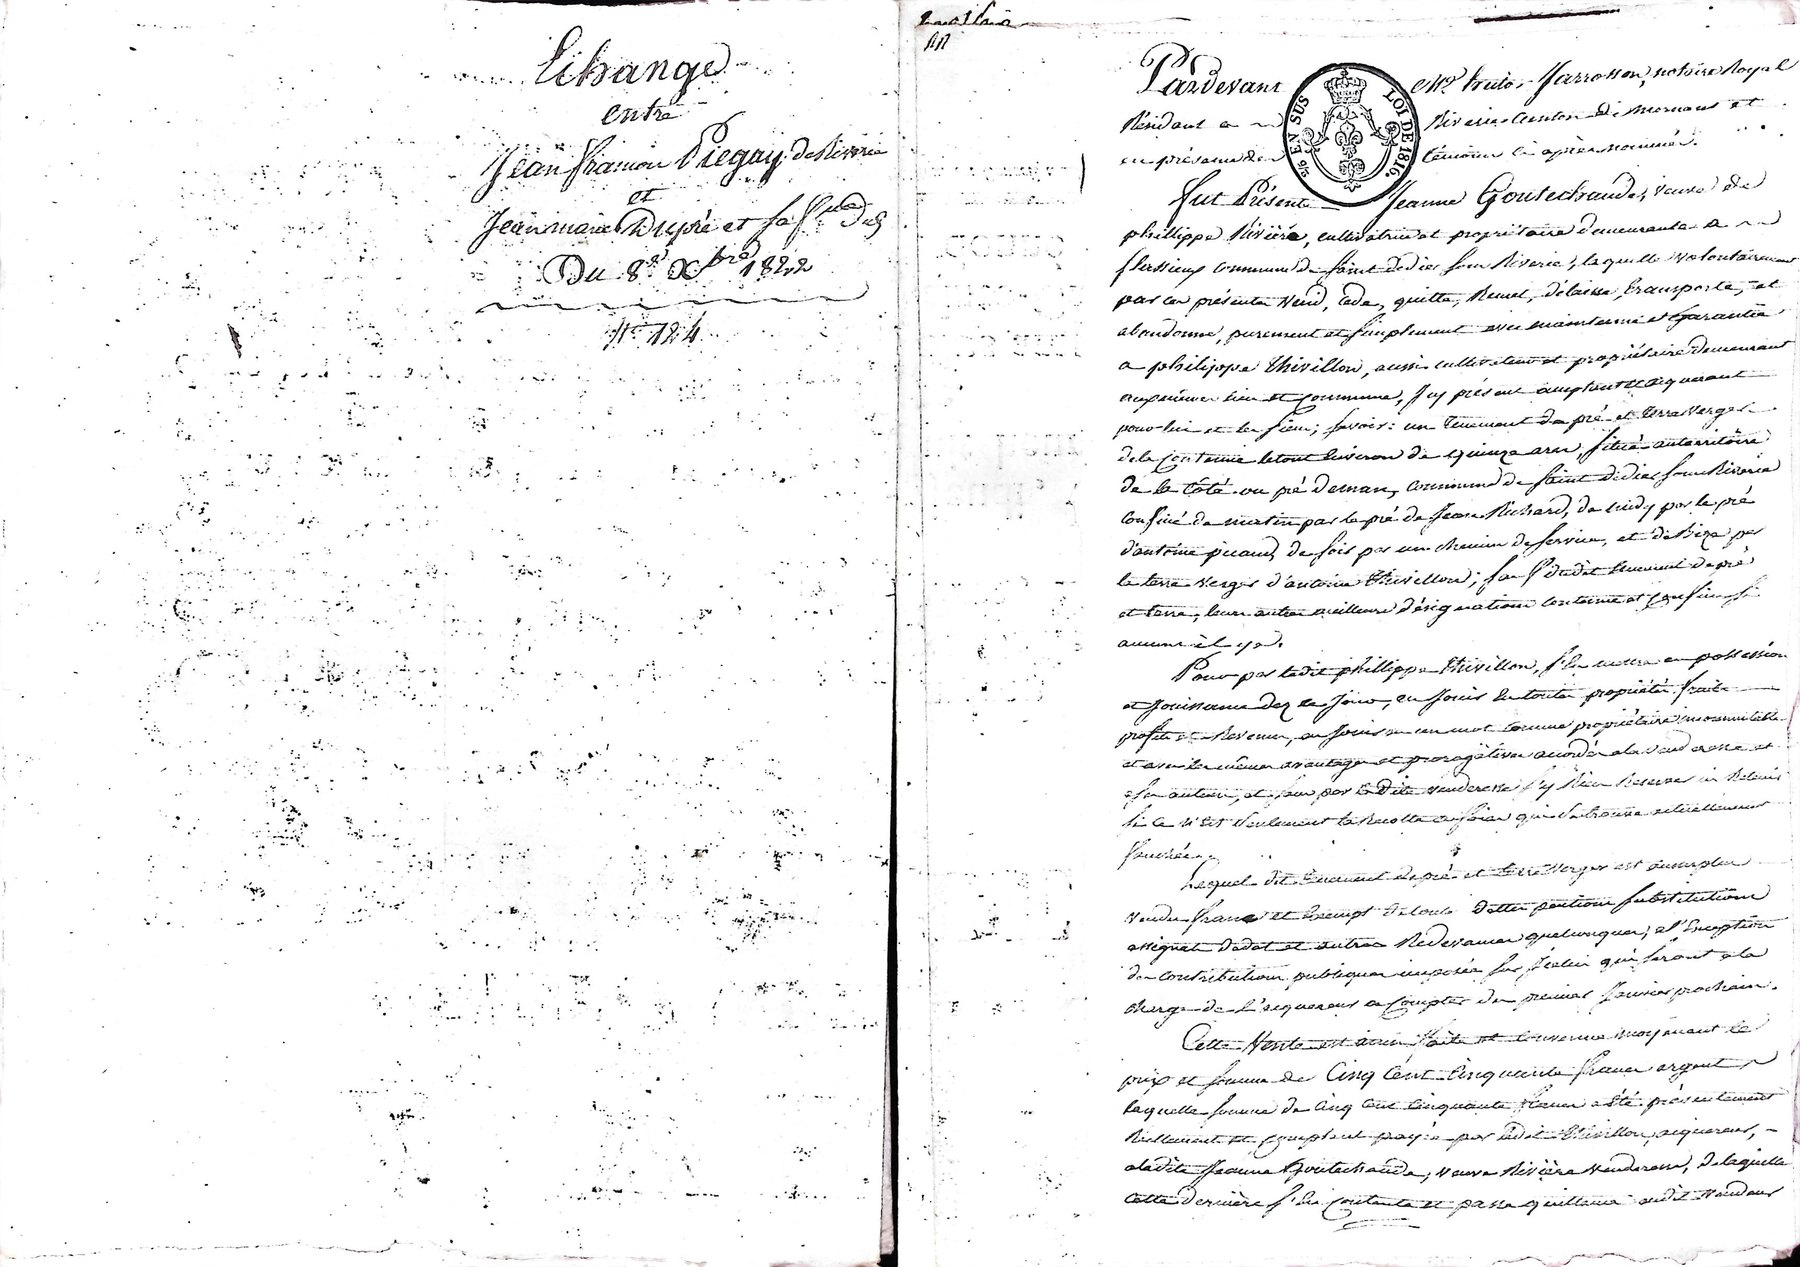 Echange
entre
Jean francou Piegay de Riverie
et
Jean marie Dupré et sa
Du 8e Xbre 1822
N° 124
Pardevant Me Jarrosson, notaire Royal
EN SUS LOI DE 1816.
Résidant a Riverie Canton de mornant et
en présence des témoins ci après nommés.
fut Présente Jeanne Goutechaude, veuve de
phillippe Rivière, cultivatrice et propriétaire demeurante a
flassieux commune de saint didier sous Riverie, laquelle volontairement
par ces présentes vend, cede, quitte, Remet, délaisse, transporte, et
abandonne, purement et simplement avec maintenue et Garantie
a philippe thivillon, aussi cultivateur et propriétaire demeurant
aux mêmes lieu et commune, Icy présent acceptant et acquerant
pour lui et les siens; savoir: un tenement de pré et terre verger
de la Contenue le tout environ de quinze ares, situé au territoire
de la Côte ou pré demars, commune de saint didier sous Riverie
confiné de matin par le pré de Jean Richard, de midy par le pré
d'antoine picaud, de soir par un chemin de service, et de bize par
la terre verger d'antoine thivillon; sauf dudit tenement de pré
et terre, leurs autres meilleurs désignations contenue et confins si
aucuns il y a.
Pour par ledit phillippe thivillon, s'en mettre en possession
et Jouissance dez ce Jour, en Jouir en toute propriété, fruits
profits et Revenus, en Jouir en un mot comme propriétaire incommutable
et avec les mêmes avantages et prerogatives accordés a la venderesse et
a ses auteurs, et sans par la dite venderesse s'y Rien Reserver ni Retenir
si ce n'est seulement la Recolte en foin qui se trouve actuellement
fauchée.
Lequel dit tenement de pré et terre verger est au surplus
vendu franc et exempt de toute dettes pentions substitutions
assignats de dot et autres Redevances quelconques, a l'Exception
des contributions publiques imposées sur Icelui qui seront a la
charge de l'acquereur a compter du premier Janvier prochain.
Cette Vente est ainsi faite et convenue moyenant le
prix et somme de Cinq Cent Cinquante francs argent
laquelle somme de cinq cent cinquante francs a été présentement
Réellement et comptant payée par ledit thivillon acquereur,
a ladite Jeanne Goutechaude, veuve Rivière venderesse, de laquelle
cette dernière s'en contente et passe quittance audit vendeur